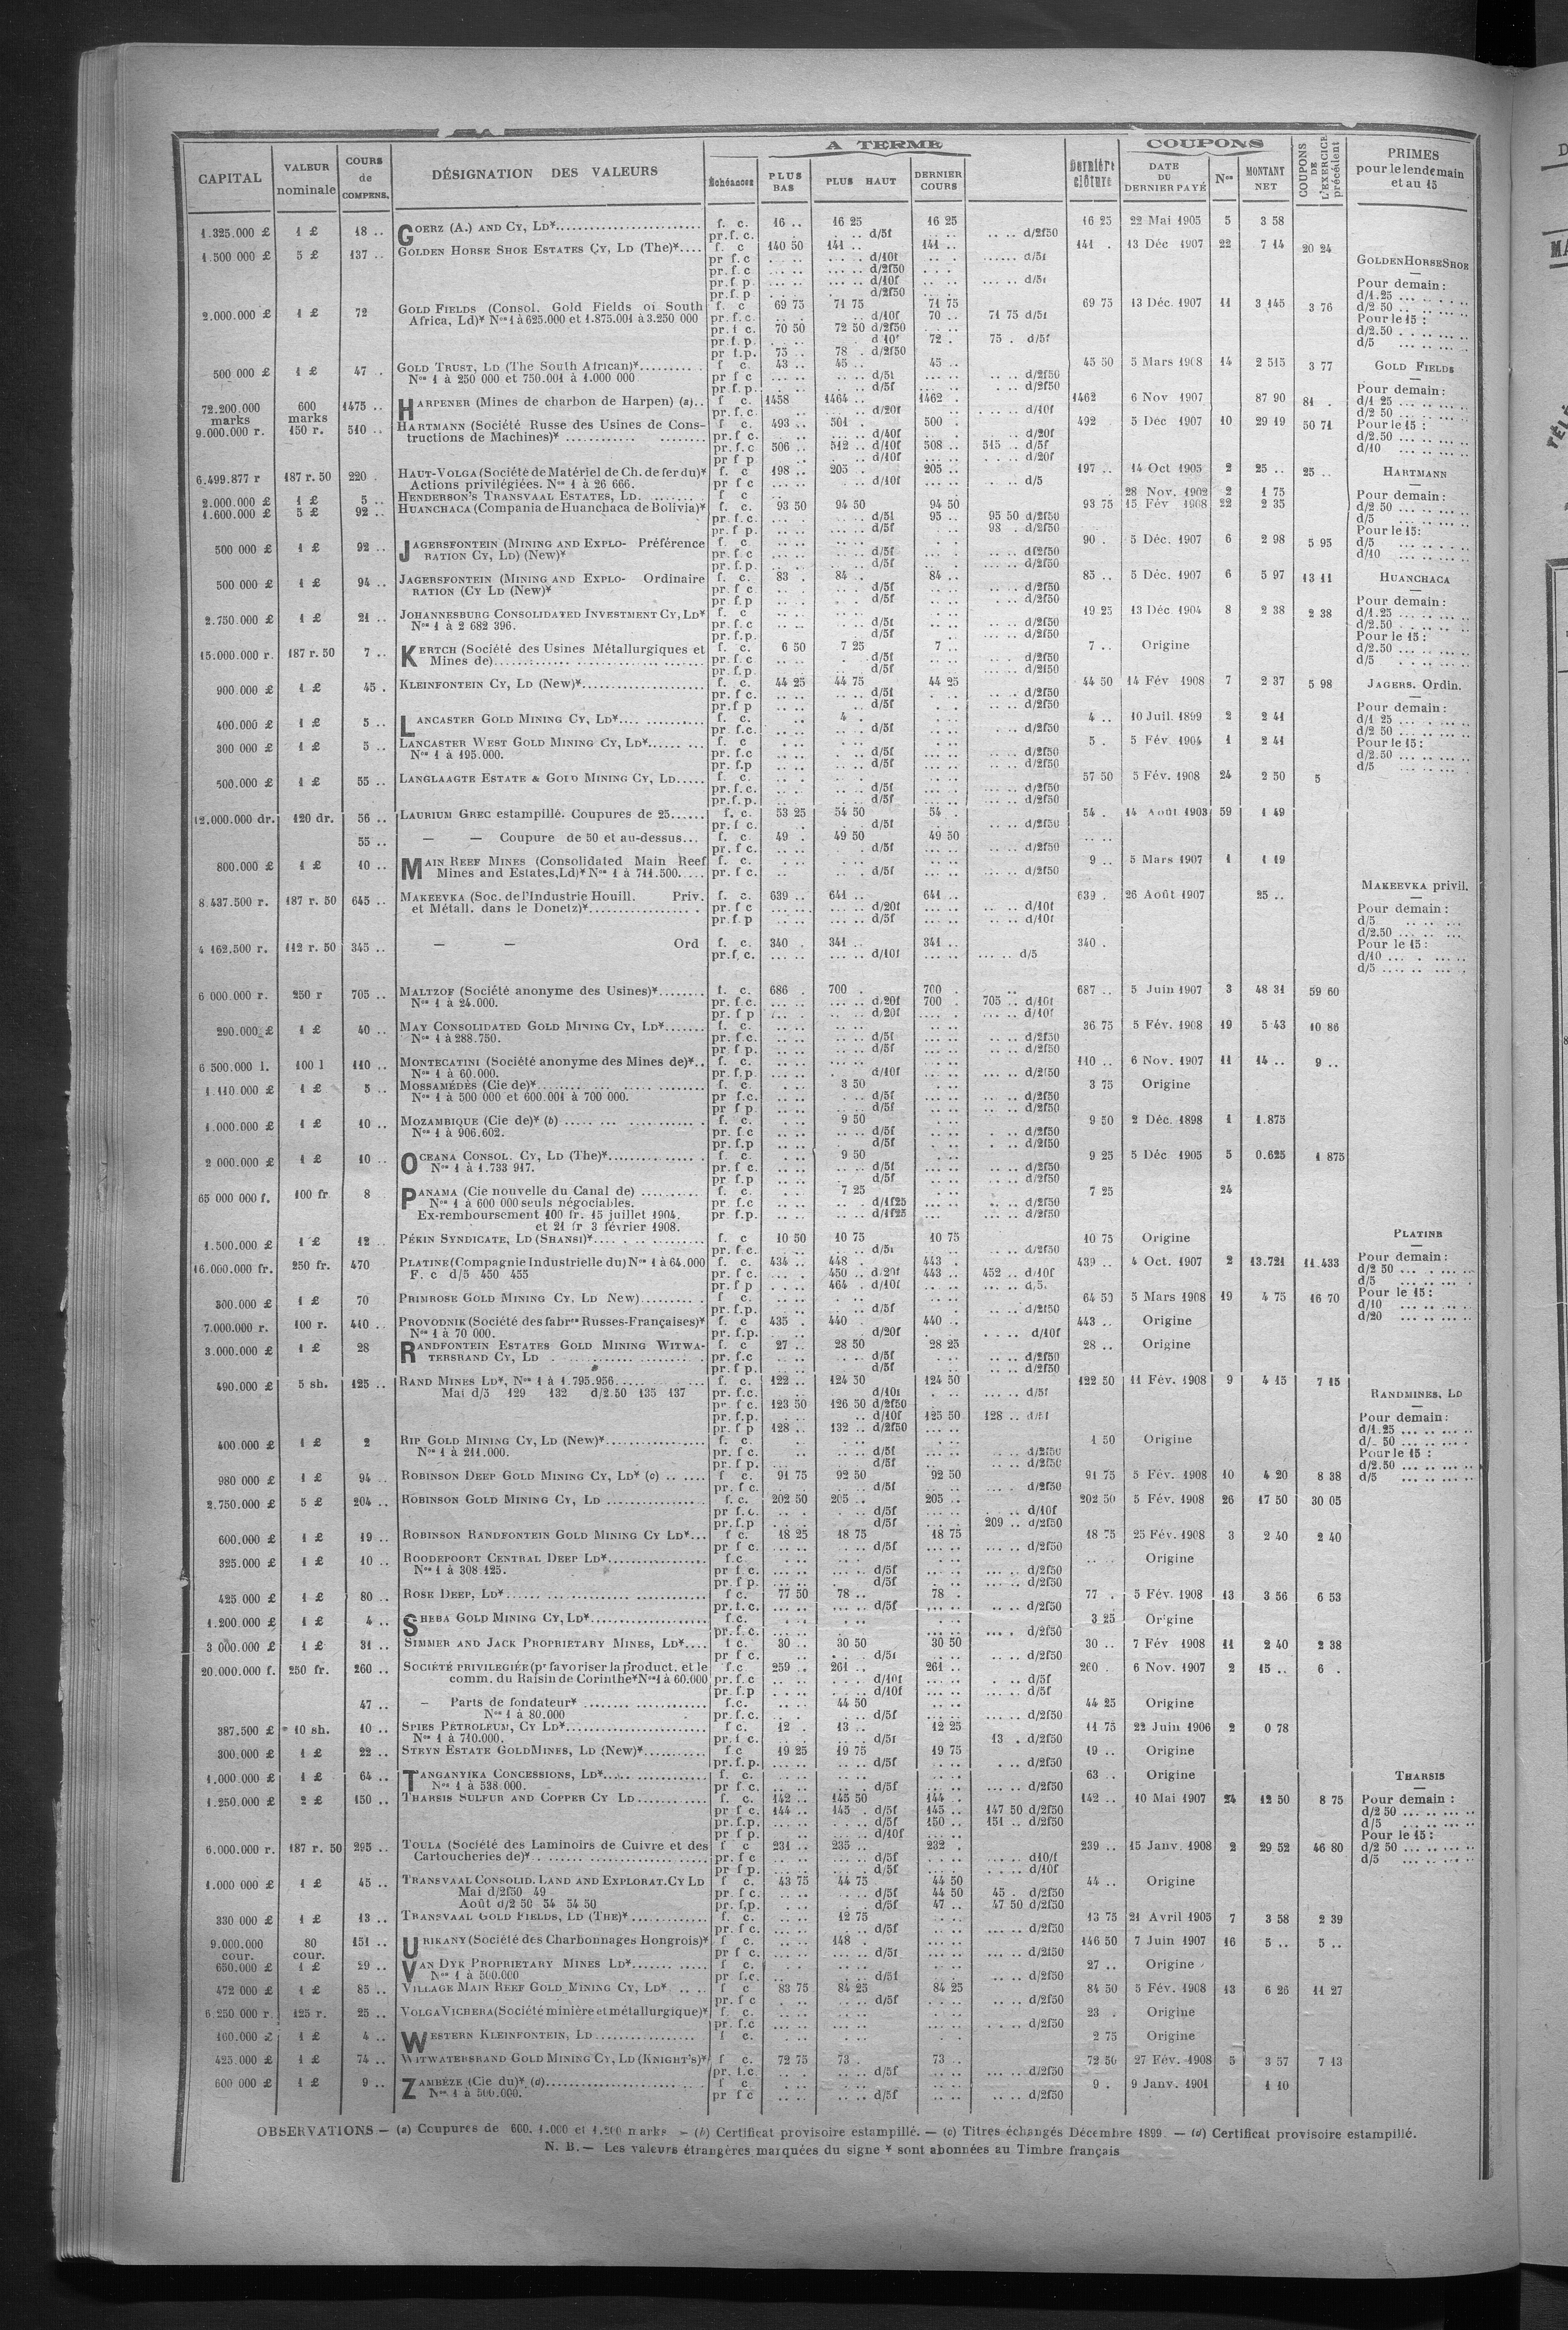 A TERME COUPONS
CAPITAL VALEUR nominale COURS de COMPENS. DÉSIGNATION DES VALEURS Échéances PLUS BAS PLUS HAUT DERNIER COURS Dernière clôture DATE DU DERNIER PAYÉ Nos MONTANT NET COUPONS DE L'EXERCICE précédent PRIMES pour le lendemain et au 15
1.325.000 £ 1 £ 18 .. GOERZ (A.) AND CY, LD* f. c. 16 .. 16 25 16 25 16 25 22 Mai 1905 5 3 58
pr.f.c. d/5f d/2f50
1.500 000 £ 5 £ 137 .. GOLDEN HORSE SHOE ESTATES CY, LD (The)* f. c 140 50 141 .. 141 .. 141 . 13 Déc 1907 22 7 14 20 24
pr f.c d/10f d/5f
pr.f.c d/2f50
pr.f.p d/10f d/5f
pr.f.p d/2f50
2.000.000 £ 1 £ 72 GOLD FIELDS (Consol. Gold Fields of South f. c 69 75 71 75 71 75 69 75 13 Déc. 1907 11 3 145 3 76
Africa, Ld)* Nos 1 à 625.000 et 1.875.001 à 3.250 000 pr.f.c. d/10f 70 .. 71 75 d/5f
pr.f c. 70 50 72 50 d/2f50
pr.f.p. d 10f 72 . 75 . d/5f
pr f.p. 75 .. 78 . d/2f50
500 000 £ 1 £ 47 . GOLD TRUST, LD (The South African)* f c. 43 .. 45 .. 45 .. 45 50 5 Mars 1908 14 2 515 3 77
Nos 1 à 250 000 et 750.001 à 1.000 000 pr f c d/5f d/2f50
pr.f.p. d/5f d/2f50
72.200.000 marks 600 marks 1475 .. HARPENER (Mines de charbon de Harpen) (a) f c. 1458 1464 .. 1462 . 1462 6 Nov 1907 87 90 81 .
pr.f.c. d/20f d/10f
9.000.000 r. 150 r. 510 .. HARTMANN (Société Russe des Usines de Cons- f c. 493 .. 501 . 500 . 492 5 Déc 1907 10 29 19 50 71
tructions de Machines)* pr.f c. d/40f d/20f
pr.f.c 506 .. 512 .. d/10f 508 .. 515 .. d/5f
pr f p d/10f d/20f
6.499.877 r 187 r. 50 220 . HAUT-VOLGA (Société de Matériel de Ch. de fer du)* f. c 198 .. 205 . 205 .. 197 .. 14 Oct 1905 2 25 .. 25 ..
Actions privilégiées. Nos 1 à 26 666. pr f c d/10f d/5
2.000.000 £ 1 £ 5 .. HENDERSON'S TRANSVAAL ESTATES, LD. f c 28 Nov. 1902 2 1 75
1.600.000 £ 5 £ 92 .. HUANCHACA (Compania de Huanchaca de Bolivia)* f. c. 93 50 94 50 94 50 93 75 15 Fév 1908 22 2 35
pr.f.c. d/5f 95 .. 95 50 d/2f50
pr.f p. d/5f 98 . d/2f50
500 000 £ 1 £ 92 .. JAGERSFONTEIN (MINING AND EXPLO- Préférence f. c. 90 . 5 Déc. 1907 6 2 98 5 95
RATION CY, LD) (New)* pr.f c d/5f d/2f50
pr.f.p. d/5f d/2f50
500 000 £ 1 £ 94 .. JAGERSFONTEIN (MINING AND EXPLO- Ordinaire f. c. 83 . 84 .. 84 .. 85 .. 5 Déc. 1907 6 5 97 13 11
RATION (CY LD (New)* pr.f c d/5f d/2f50
pr.f.p d/5f d/2f50
2.750.000 £ 1 £ 21 .. JOHANNESBURG CONSOLIDATED INVESTMENT CY, LD* f. c 19 25 13 Déc. 1904 8 2 38 2 38
Nos 1 à 2 682 396. pr.f.c d/5f d/2f50
pr.f.p. d/5f d/2f50
15.000.000 r. 187 r. 50 7 .. KERTCH (Société des Usines Métallurgiques et f. c. 6 50 7 25 7 .. 7 .. Origine
Mines de) pr.f c d/5f d/2f50
pr.f.p. d/5f d/2f50
900.000 £ 1 £ 45 . KLEINFONTEIN CY, LD (New)* f. c. 44 25 44 75 44 25 44 50 14 Fév 1908 7 2 37 5 98
pr.f c. d/5f d/2f50
pr.f p d/5f d/2f50
400.000 £ 1 £ 5 .. LANCASTER GOLD MINING CY, LD* f. c. 4 . 4 .. 10 Juil. 1899 2 2 41
pr.f.c. d/5f d/2f50
300 000 £ 1 £ 5 .. LANCASTER WEST GOLD MINING CY, LD* f. c 5 . 5 Fév. 1904 1 2 41
Nos 1 à 195.000. pr.f.c d/5f d/2f50
pr.f.p d/5f d/2f50
500.000 £ 1 £ 55 .. LANGLAAGTE ESTATE & GOLD MINING CY, LD f. c. 57 50 5 Fév. 1908 24 2 50 5
pr.f.c. d/5f d/2f50
pr.f.p. d/5f d/2f50
12.000.000 dr. 120 dr. 56 .. LAURIUM GREC estampillé. Coupures de 25 f. c. 53 25 54 50 54 . 54 . 14 Août 1903 59 1 49
pr.f c. d/5f d/2f50
55 .. — — Coupure de 50 et au-dessus f. c. 49 . 49 50 49 50
pr.f c. d/5f d/2f50
800.000 £ 1 £ 10 .. MAIN REEF MINES (Consolidated Main Reef f. c. 9 .. 5 Mars 1907 1 1 19
Mines and Estates, Ld)* Nos 1 à 711.500 pr.f c. d/5f d/2f50
8.437.500 r. 187 r. 50 645 .. MAKEEVKA (Soc. de l'Industrie Houill. Priv. f. c. 639 .. 641 .. 641 .. 639 . 26 Août 1907 25 ..
et Métall. dans le Donetz)* pr.f c d/20f d/10f
pr.f.p d/5f d/10f
4 162.500 r. 112 r. 50 345 .. — — Ord f. c. 340 . 341 .. 341 .. 340 .
pr.f.c. d/10f d/5
6 000.000 r. 250 r 705 .. MALTZOF (Société anonyme des Usines)* f. c. 686 . 700 . 700 . 687 .. 5 Juin 1907 3 48 31 59 60
Nos 1 à 24.000. pr.f c. d/20f 700 . 705 .. d/10f
pr f p d/20f d/10f
290.000 £ 1 £ 40 .. MAY CONSOLIDATED GOLD MINING CY, LD* f. c. 36 75 5 Fév. 1908 19 5 43 10 86
Nos 1 à 288.750. pr.f c. d/5f d/2f50
pr f p. d/5f d/2f50
6 500.000 l. 100 l 110 .. MONTECATINI (Société anonyme des Mines de)* f. c. 110 .. 6 Nov. 1907 11 14 .. 9 ..
Nos 1 à 60.000. pr.f.p. d/10f d/2f50
1.110 000 £ 1 £ 5 .. MOSSAMÉDÈS (Cie de)* f. c. 3 50 3 75 Origine
Nos 1 à 500 000 et 600.001 à 700 000. pr f.c. d/5f d/2f50
pr f p. d/5f d/2f50
1.000.000 £ 1 £ 10 .. MOZAMBIQUE (Cie de)* (b) f. c. 9 50 9 50 2 Déc. 1898 1 1.875
Nos 1 à 906.602. pr. f c d/5f d/2f50
pr. f.p d/5f d/2f50
2 000.000 £ 1 £ 10 .. OCEANA CONSOL. CY, LD (The)* f. c. 9 50 9 25 5 Déc 1905 5 0.625 1 875
Nos 1 à 1.733 917. pr.f c. d/5f d/2f50
pr f.p d/5f d/2f50
65 000 000 f. 100 fr 8 PANAMA (Cie nouvelle du Canal de) f. c. 7 25 7 25 24
Nos 1 à 600 000 seuls négociables. pr. f.c d/1f25 d/2f50
Ex-remboursement 100 fr. 15 juillet 1904. pr f.p. d/1f25 d/2f50
et 21 fr 3 février 1908.
1.500.000 £ 1 £ 12 PÉKIN SYNDICATE, LD (SHANSI)* f. c 10 50 10 75 10 75 10 75 Origine
pr.f c. d/5f d/2f50
16.000.000 fr. 250 fr. 470 PLATINE (Compagnie Industrielle du) Nos 1 à 64.000 f c. 434 .. 448 . 443 . 439 .. 4 Oct. 1907 2 13.721 11.433
F. c d/5 450 455 pr f c. 450 .. d/20f 443 .. 452 .. d/10f
pr f p 464 . d/10f d.5.
300.000 £ 1 £ 70 PRIMROSE GOLD MINING CY. LD New) f c. 64 50 5 Mars 1908 19 4 75 16 70
pr.f.p. d/5f d/2f50
7.000.000 r. 100 r. 410 .. PROVODNIK (Société des fabres Russes-Françaises)* f. c 435 . 440 . 440 .. 443 .. Origine
Nos 1 à 70 000. pr.f.p. d/20f d/10f
3.000.000 £ 1 £ 28 RANDFONTEIN ESTATES GOLD MINING WITWA- f. c 27 .. 28 50 28 25 28 .. Origine
TERSRAND CY, LD pr.f.c d/5f d/2f50
pr f p. d/5f d/2f50
490.000 £ 5 sh. 125 .. RAND MINES LD*, Nos 1 à 1.795.956 f. c. 122 .. 124 50 124 50 122 50 11 Fév. 1908 9 4 15 7 15
Mai d/5 129 132 d/2.50 135 137 pr.f.c. d/10f d/5f
pr f c. 123 50 126 50 d/2f50
pr.f.p. d/10f 125 50 128 .. d/5f
pr f p 128 .. 132 .. d/2f50
400.000 £ 1 £ 2 RIP GOLD MINING CY, LD (New)* f. c. 1 50 Origine
Nos 1 à 211.000. pr.f c. d/5f d/2f50
pr.f p. d/5f d/2f50
980 000 £ 1 £ 94 .. ROBINSON DEEP GOLD MINING CY, LD* (c) f c. 91 75 92 50 92 50 91 75 5 Fév. 1908 10 4 20 8 38
pr.f c. d/5f d/2f50
2.750.000 £ 5 £ 204 .. ROBINSON GOLD MINING CY, LD f. c. 202 50 205 .. 205 .. 202 50 5 Fév. 1908 26 17 50 30 05
pr f.c. d/5f d/10f
pr.f.p d/5f 209 .. d/2f50
600.000 £ 1 £ 19 .. ROBINSON RANDFONTEIN GOLD MINING CY LD* f c. 18 25 18 75 18 75 18 75 25 Fév. 1908 3 2 40 2 40
pr f c. d/5f d/2f50
325.000 £ 1 £ 10 .. ROODEPOORT CENTRAL DEEP LD* f.c Origine
Nos 1 à 308 125. pr f.c. d/5f d/2f50
pr f p. d/5f d/2f50
425 000 £ 1 £ 80 .. ROSE DEEP, LD* f c. 77 50 78 .. 78 . 77 . 5 Fév. 1908 13 3 56 6 53
pr.f.c. d/5f d/2f50
1.200.000 £ 1 £ 4 .. SHEBA GOLD MINING CY, LD* f.c. 3 25 Origine
pr.f.c.
3 000.000 £ 1 £ 31 .. SIMMER AND JACK PROPRIETARY MINES, LD* f c. 30 .. 30 50 30 50 30 .. 7 Fév 1908 11 2 40 2 38
pr f c. d/5f d/2f50
20.000.000 f. 250 fr. 260 .. SOCIÉTÉ PRIVILEGIÉE (pr favoriser la product. et le f.c 259 .. 261 .. 261 .. 260 . 6 Nov. 1907 2 15 .. 6 .
comm. du Raisin de Corinthe* Nos 1 à 60.000 pr.f.c d/10f d/5f
pr.f.p d/10f d/5f
47 .. — Parts de fondateur* f.c. 44 50 44 25 Origine
Nos 1 à 80.000 pr.f.c. d/5f d/2f50
387.500 £ 10 sh. 10 .. SPIES PETROLEUM, CY LD* f c. 12 . 13 .. 12 25 11 75 22 Juin 1906 2 0 78
Nos 1 à 710.000. pr.f c. d/5f 13 . d/2f50
300.000 £ 1 £ 22 .. STEYN ESTATE GOLD MINES, LD (New)* f c 19 25 19 75 19 75 19 .. Origine
pr.f.p. d/5f d/2f50
1.000.000 £ 1 £ 64 .. TANGANYIKA CONCESSIONS, LD* f. c. 63 .. Origine
Nos 1 à 538.000. pr f c. d/5f d/2f50
1.250.000 £ 2 £ 150 .. THARSIS SULFUR AND COPPER CY LD f. c. 142 .. 145 50 144 . 142 .. 10 Mai 1907 24 12 50 8 75
pr f c. 144 .. 145 . d/5f 145 .. 147 50 d/2f50
pr.f.p. d/5f 150 .. 151 .. d/2f50
pr f p. d/10f
6.000.000 r. 187 r. 50 295 .. TOULA (Société des Laminoirs de Cuivre et des f c 231 .. 235 .. 232 . 239 .. 15 Janv. 1908 2 29 52 46 80
Cartoucheries de)* pr. f c d/5f d10/f
pr f p. d/5f d/10f
1.000 000 £ 1 £ 45 .. TRANSVAAL CONSOLID. LAND AND EXPLORAT. CY LD f c. 43 75 44 75 44 50 44 .. Origine
Mai d/2f50 49 pr f c. d/5f 44 50 45 . d/2f50
Août d/2 50 54 54 50 pr f.p. d/5f 47 .. 47 50 d/2f50
330 000 £ 1 £ 13 .. TRANSVAAL GOLD FIELDS, LD (THE)* f. c. 12 75 13 75 21 Avril 1905 7 3 58 2 39
pr. f c. d/5f d/2f50
9.000.000 cour. 80 cour. 151 .. URIKANY (Société des Charbonnages Hongrois)* f c. 148 . 146 50 7 Juin 1907 16 5 .. 5 ..
pr f c. d/5f d/2f50
650.000 £ 1 £ 29 .. VAN DYK PROPRIETARY MINES LD* f c. 27 .. Origine
Nos 1 à 500.000 pr f.c. d/5f d/2f50
472 000 £ 1 £ 85 .. VILLAGE MAIN REEF GOLD MINING CY, LD* f c 83 75 84 25 84 25 84 50 5 Fév. 1908 13 6 26 11 27
pr. f c d/5f d/2f50
6.250 000 r. 125 r. 25 .. VOLGA VICHERA (Société minière et métallurgique)* f. c. 23 . Origine
pr.f.c d/2f50
100.000 £ 1 £ 4 .. WESTERN KLEINFONTEIN, LD f c. 2 75 Origine
425.000 £ 1 £ 74 .. WITWATERSRAND GOLD MINING CY, LD (KNIGHT'S)* f c. 72 75 73 . 73 .. 72 50 27 Fév. 1908 5 3 57 7 13
pr. f.c. d/5f d/2f50
600 000 £ 1 £ 9 .. ZAMBÈZE (Cie du)* (d) f c. 9 . 9 Janv. 1901 1 10
Nos 1 à 500.000. pr f c d/5f d/2f50
GOLDEN HORSE SHOE
Pour demain :
d/1.25
d/2 50
Pour le 15 :
d/2.50
d/5
GOLD FIELDS
Pour demain :
d/1 25
d/2 50
Pour le 15 :
d/2.50
d/10
HARTMANN
Pour demain :
d/2 50
d/5
Pour le 15 :
d/5
d/10
HUANCHACA
Pour demain :
d/1.25
d/2.50
Pour le 15 :
d/2.50
d/5
JAGERS. Ordin.
Pour demain :
d/1 25
d/2 50
Pour le 15 :
d/2.50
d/5
MAKEEVKA privil.
Pour demain :
d/5
d/2.50
Pour le 15 :
d/10
d/5
PLATINE
Pour demain :
d/2 50
d/5
Pour le 15 :
d/10
d/20
RANDMINES, LD
Pour demain :
d/1.25
Pour le 15 :
d/2.50
d/5
THARSIS
Pour demain :
d/2 50
d/5
Pour le 15 :
d/2 50
d/5
OBSERVATIONS — (a) Coupures de 600, 1.000 et 1.200 marks — (b) Certificat provisoire estampillé. — (c) Titres échangés Décembre 1899. — (d) Certificat provisoire estampillé.
N. B. — Les valeurs étrangères marquées du signe * sont abonnées au Timbre français